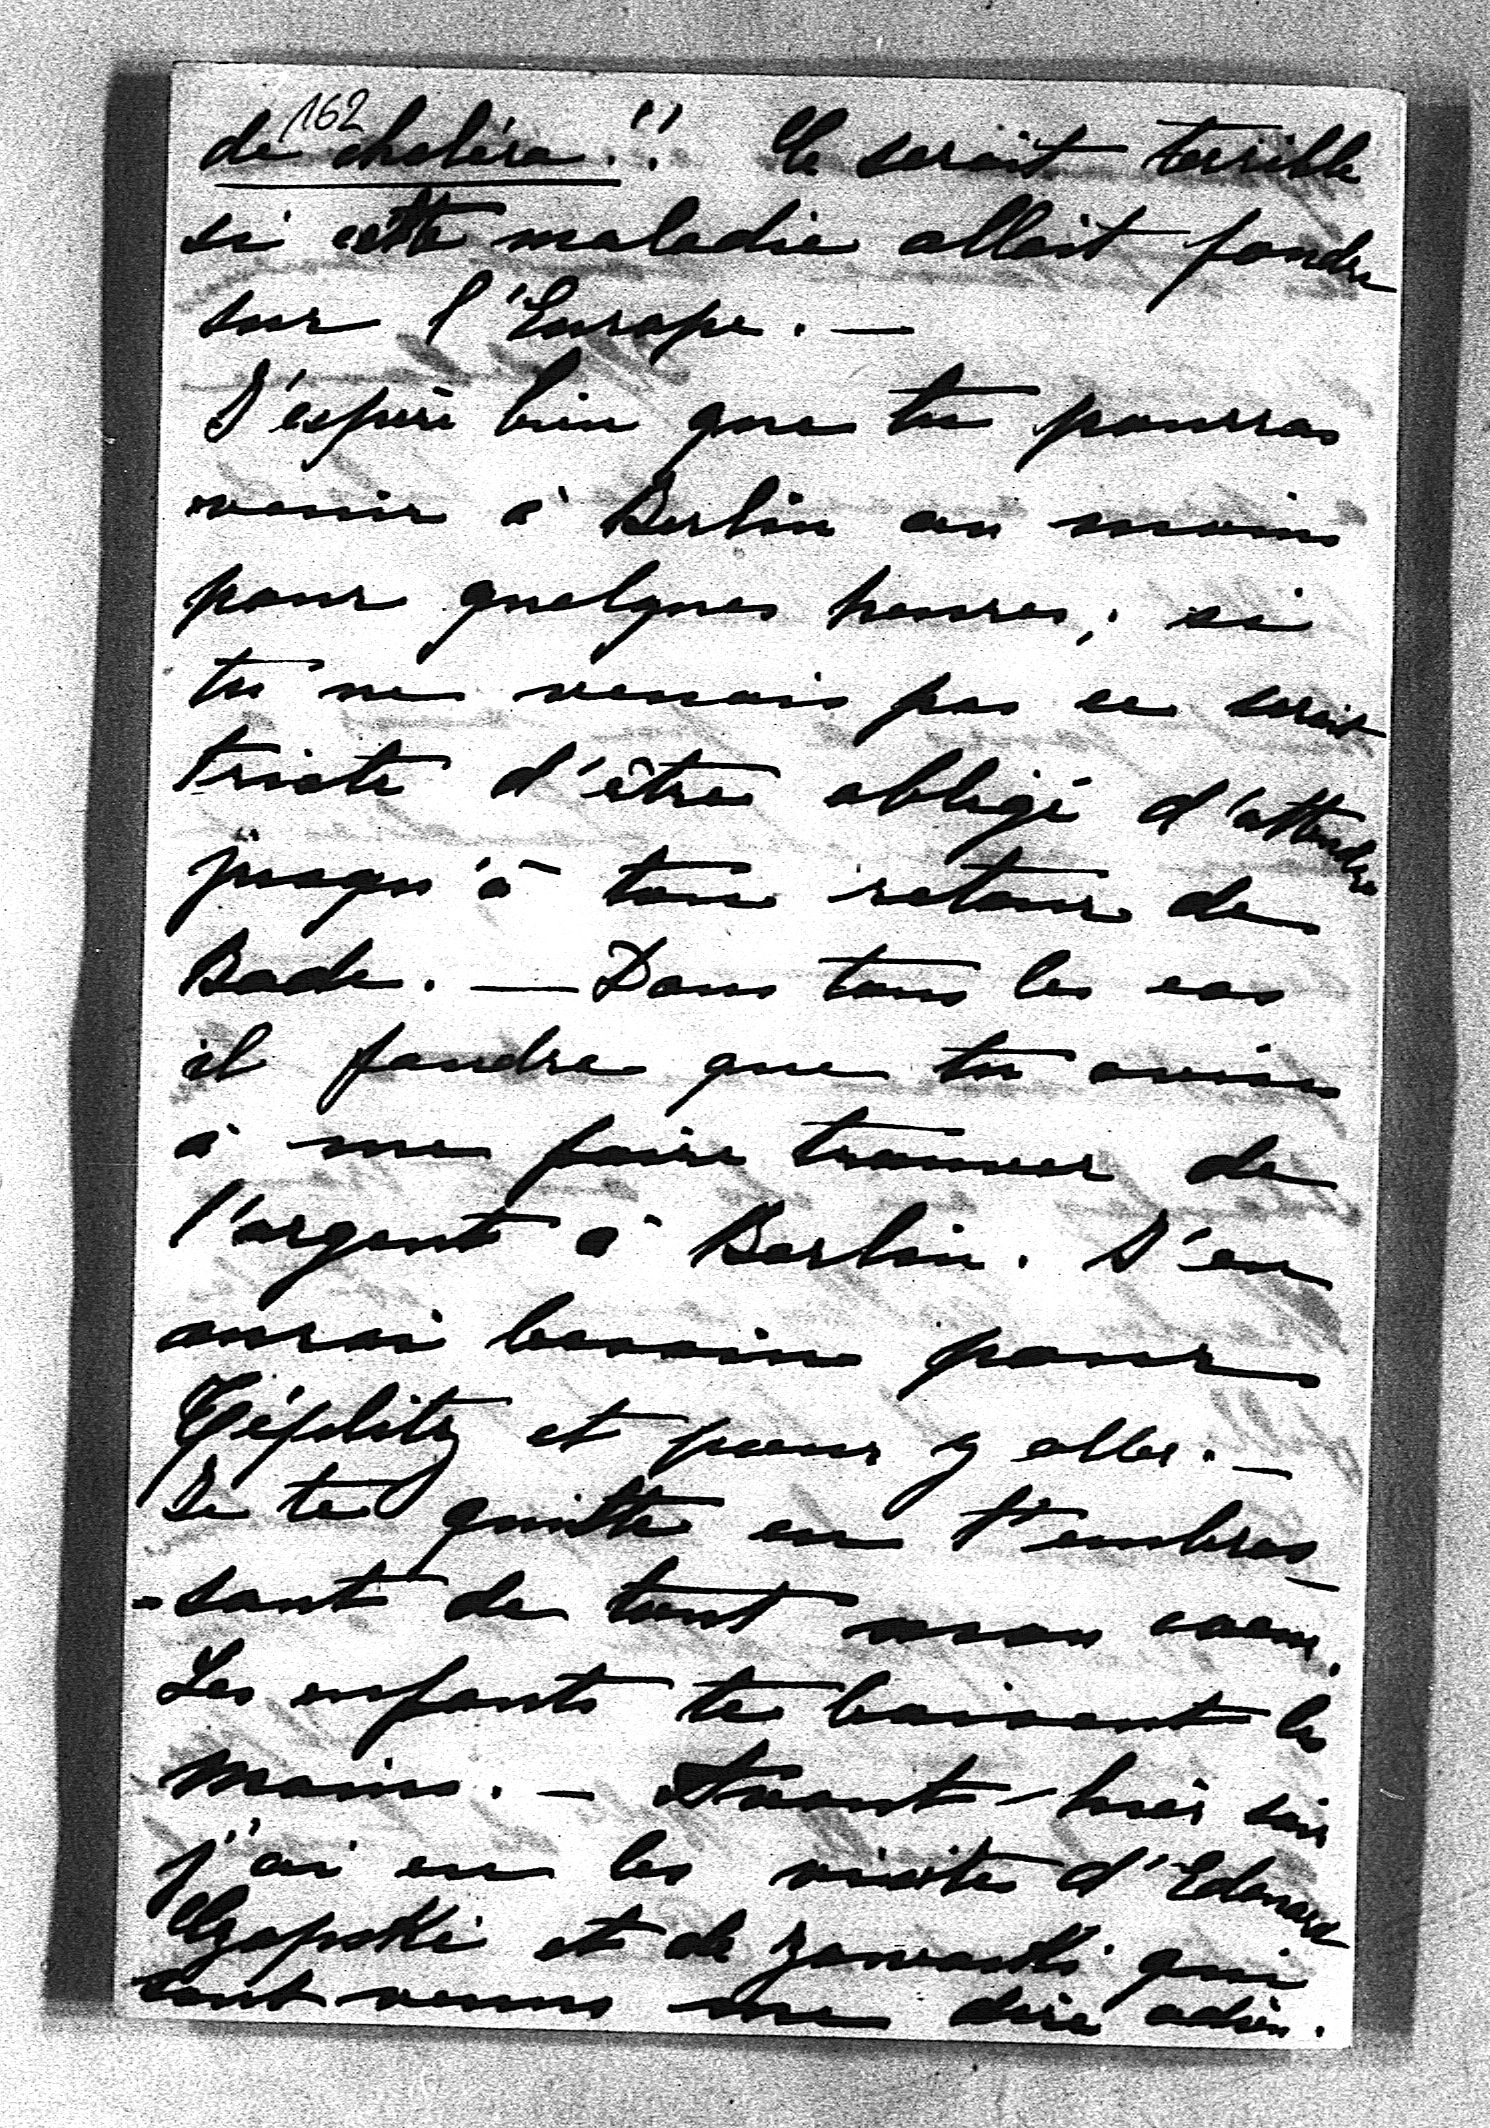 162
de choléra!! Ce serait terrible
si cette maladie allait fondre
sur l'Europe. —
J'espère bien que tu pourras
venir à Berlin au moins
pour quelques heures; si
tu ne venais pas ce serait
triste d'être obligé d'attendre
jusqu'à ton retour de
Bade. — Dans tous les cas
il faudra que tu avises
à me faire trouver de
l'argent à Berlin. J'en
aurai besoin pour
Téplitz et pour y aller. —
Je te quitte en t'embras-
-sant de tout mon coeur.
Les enfants te baisent les
mains. — Avant-hier soir
j'ai eu les visites d'Edouard
Czapski et de Zawadzki qui
sont venus me dire adieu.